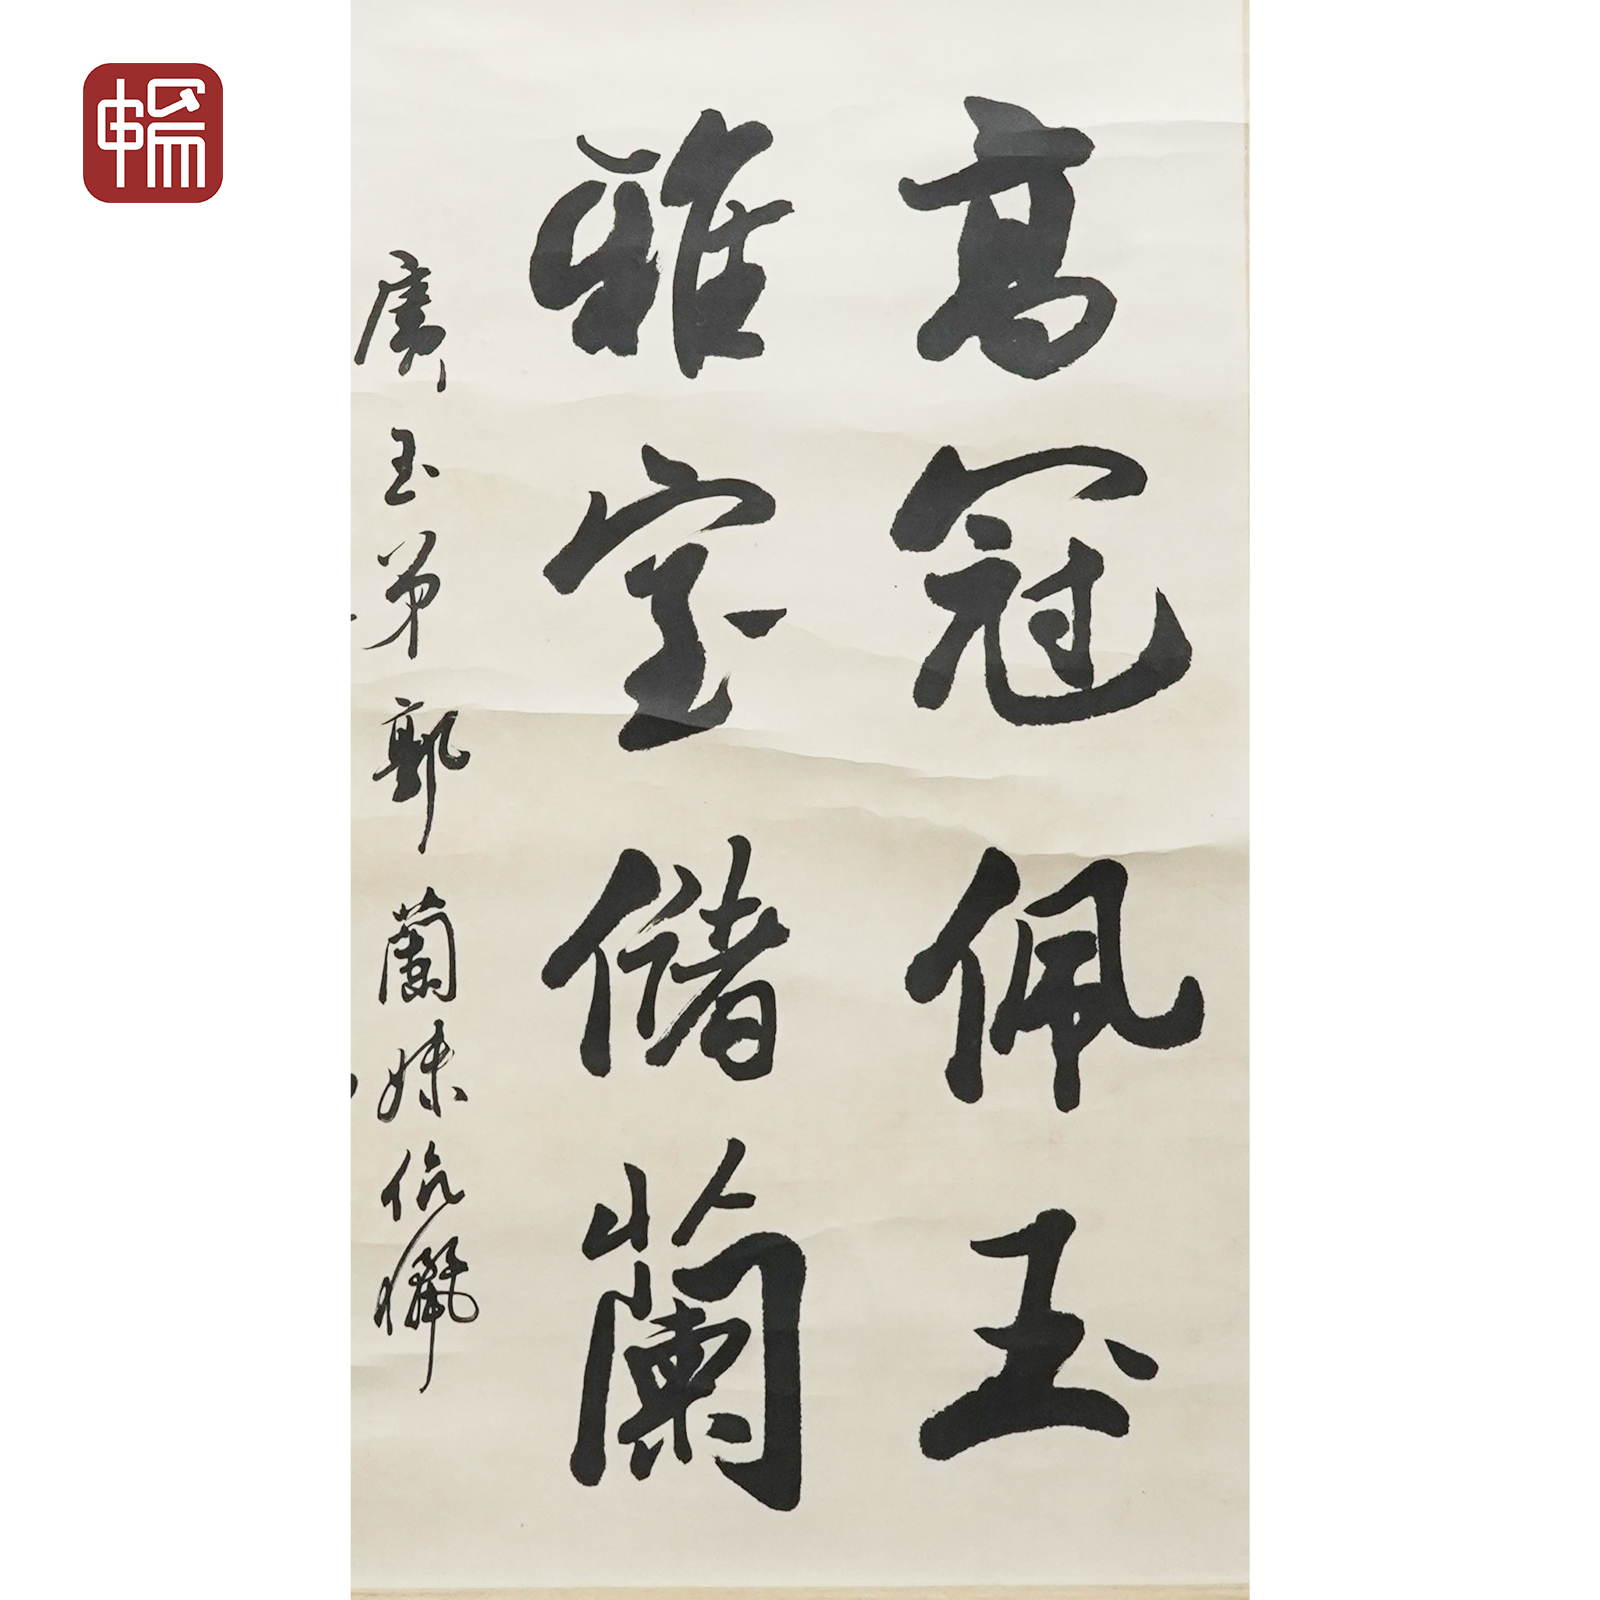 高冠佩玉
雅室儲蘭
廣玉弟郭蘭妹伉儷